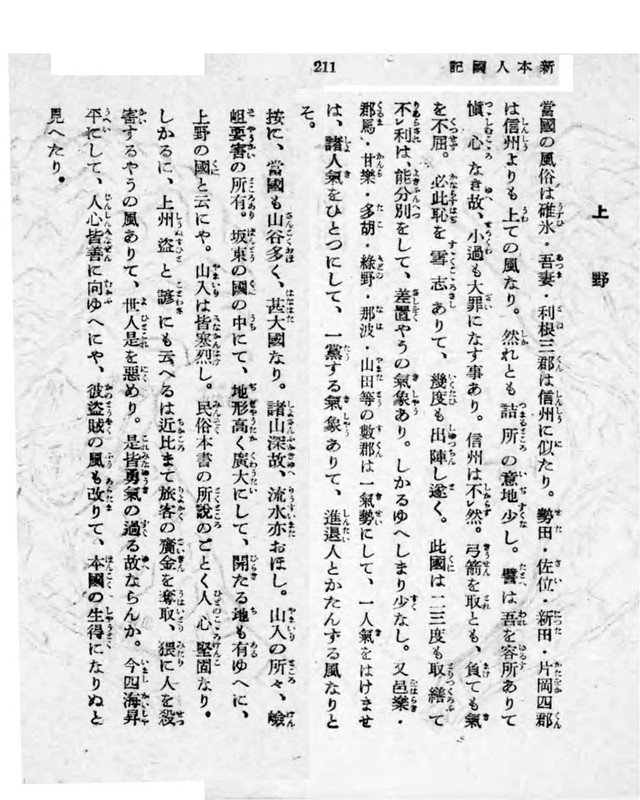 新本人國記
211
上野
當國の風俗は碓氷・吾妻・利根三郡は信州に似たり。勢田・佐位・新田・片岡四郡
は信州よりも上ての風なり。然れとも詰所の意地少し。譬は吾を容所ありて
愼心なき故、小過も大罪になす事あり。信州は不㆑然。弓箭を取とも、負ても氣
を不屈。必此恥を雪志ありて、幾度も出陣し遂く。此國は二三度も取繕て
不㆑利は、能分別をして、差置やうの氣象あり。しかるゆへしまり少なし。又邑樂・
郡馬・甘樂・多胡・綠野・那波・山田等の數郡は一氣勢にして、一人氣をはけませ
は、諸人氣をひとつにして、一黨する氣象ありて、進退人とかたんする風なりと
そ。
按に、當國も山谷多く、甚大國なり。諸山深故、流水亦おほし。山入の所々、嶮
岨要害の所有。坂東の國の中にて、地形高く廣大にして、開たる地も有ゆへに、
上野の國と云にや。山入は皆寒烈し。民俗本書の所說のごとく人心堅固なり。
しかるに、上州盜と諺にも云へるは近比まて旅客の齎金を奪取、猥に人を殺
害するやうの風ありて、世人是を惡めり。是皆勇氣の過る故ならんか。今四海昇
平にして、人心皆善に向ゆへにや、彼盜賊の風も改りて、本國の生得になりぬと
見へたり。